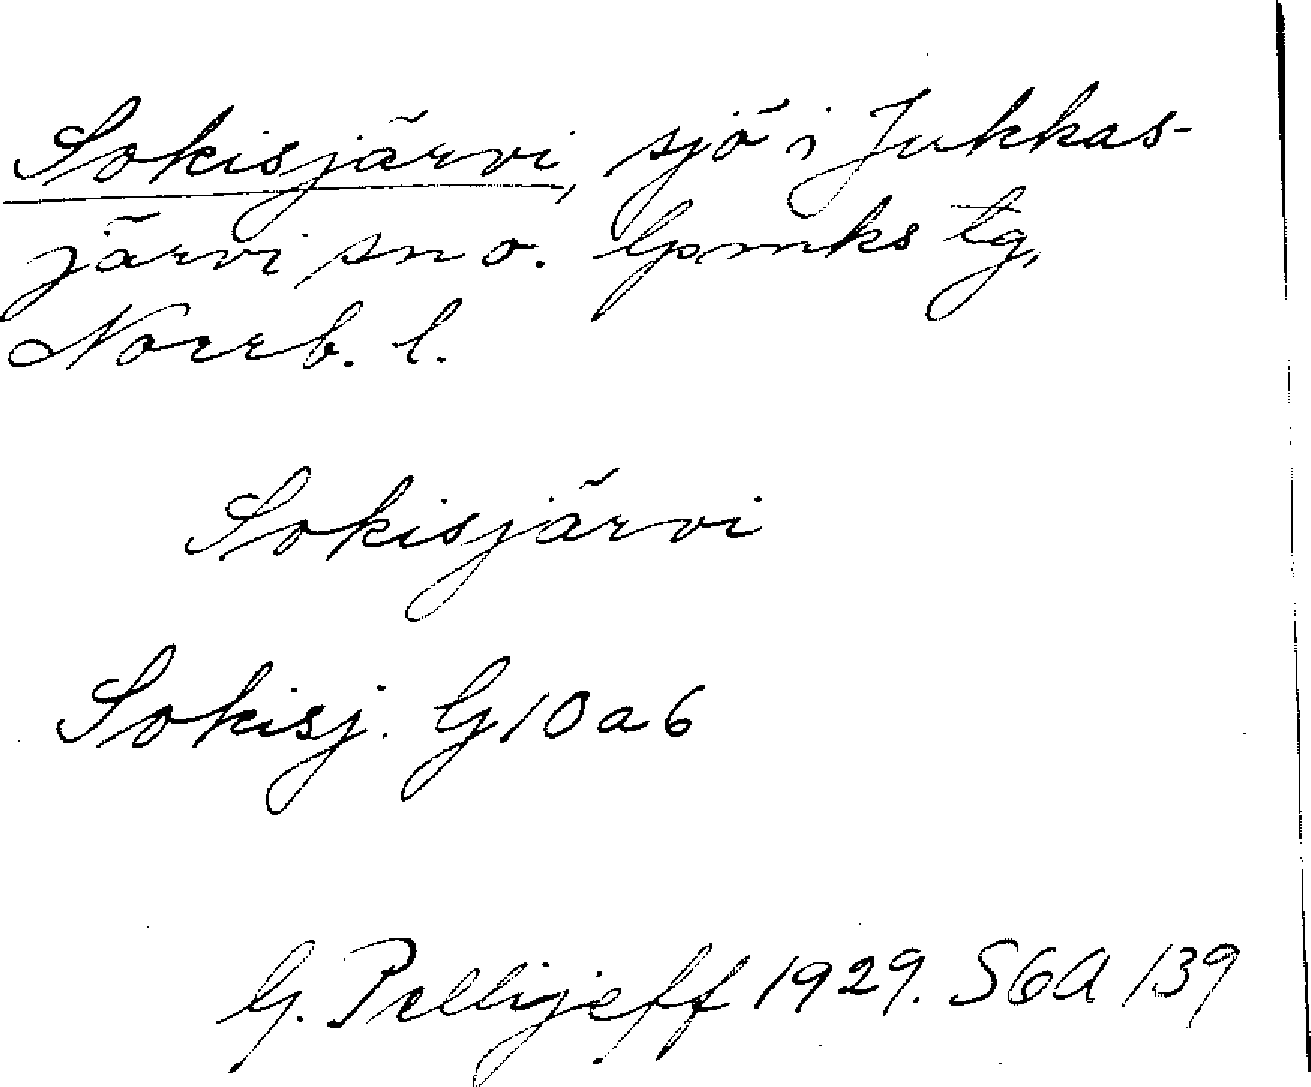 Sokisjärvi, sjö i Jukkas-
järvi sn o. lpmks tg,
Norrb. l.
Sokisjärvi
Sokisj. G10a6
G. Pellijeff 1929. SGA 139